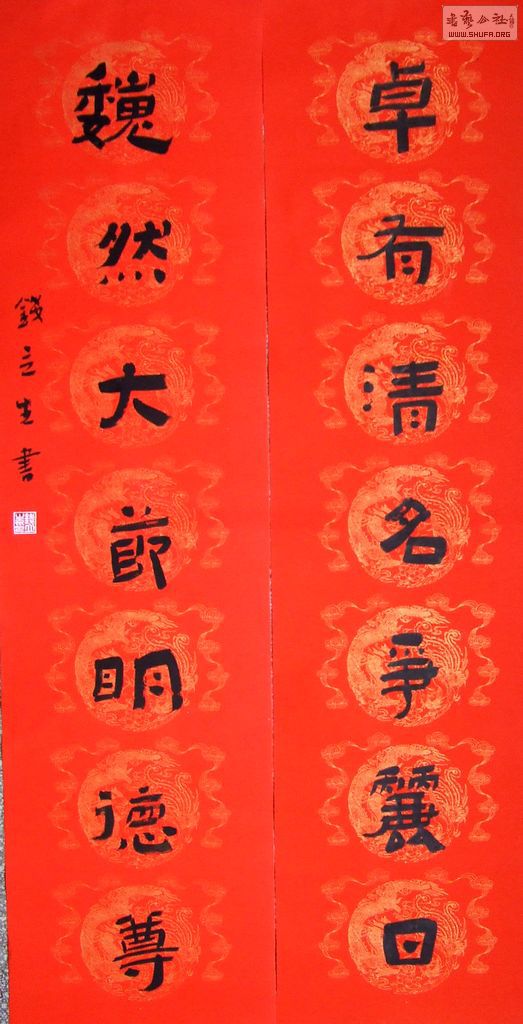 卓有清名争麗日
魏然大節明德尊
錢立生書
書藝公社
WWW.SHUFA.ORG